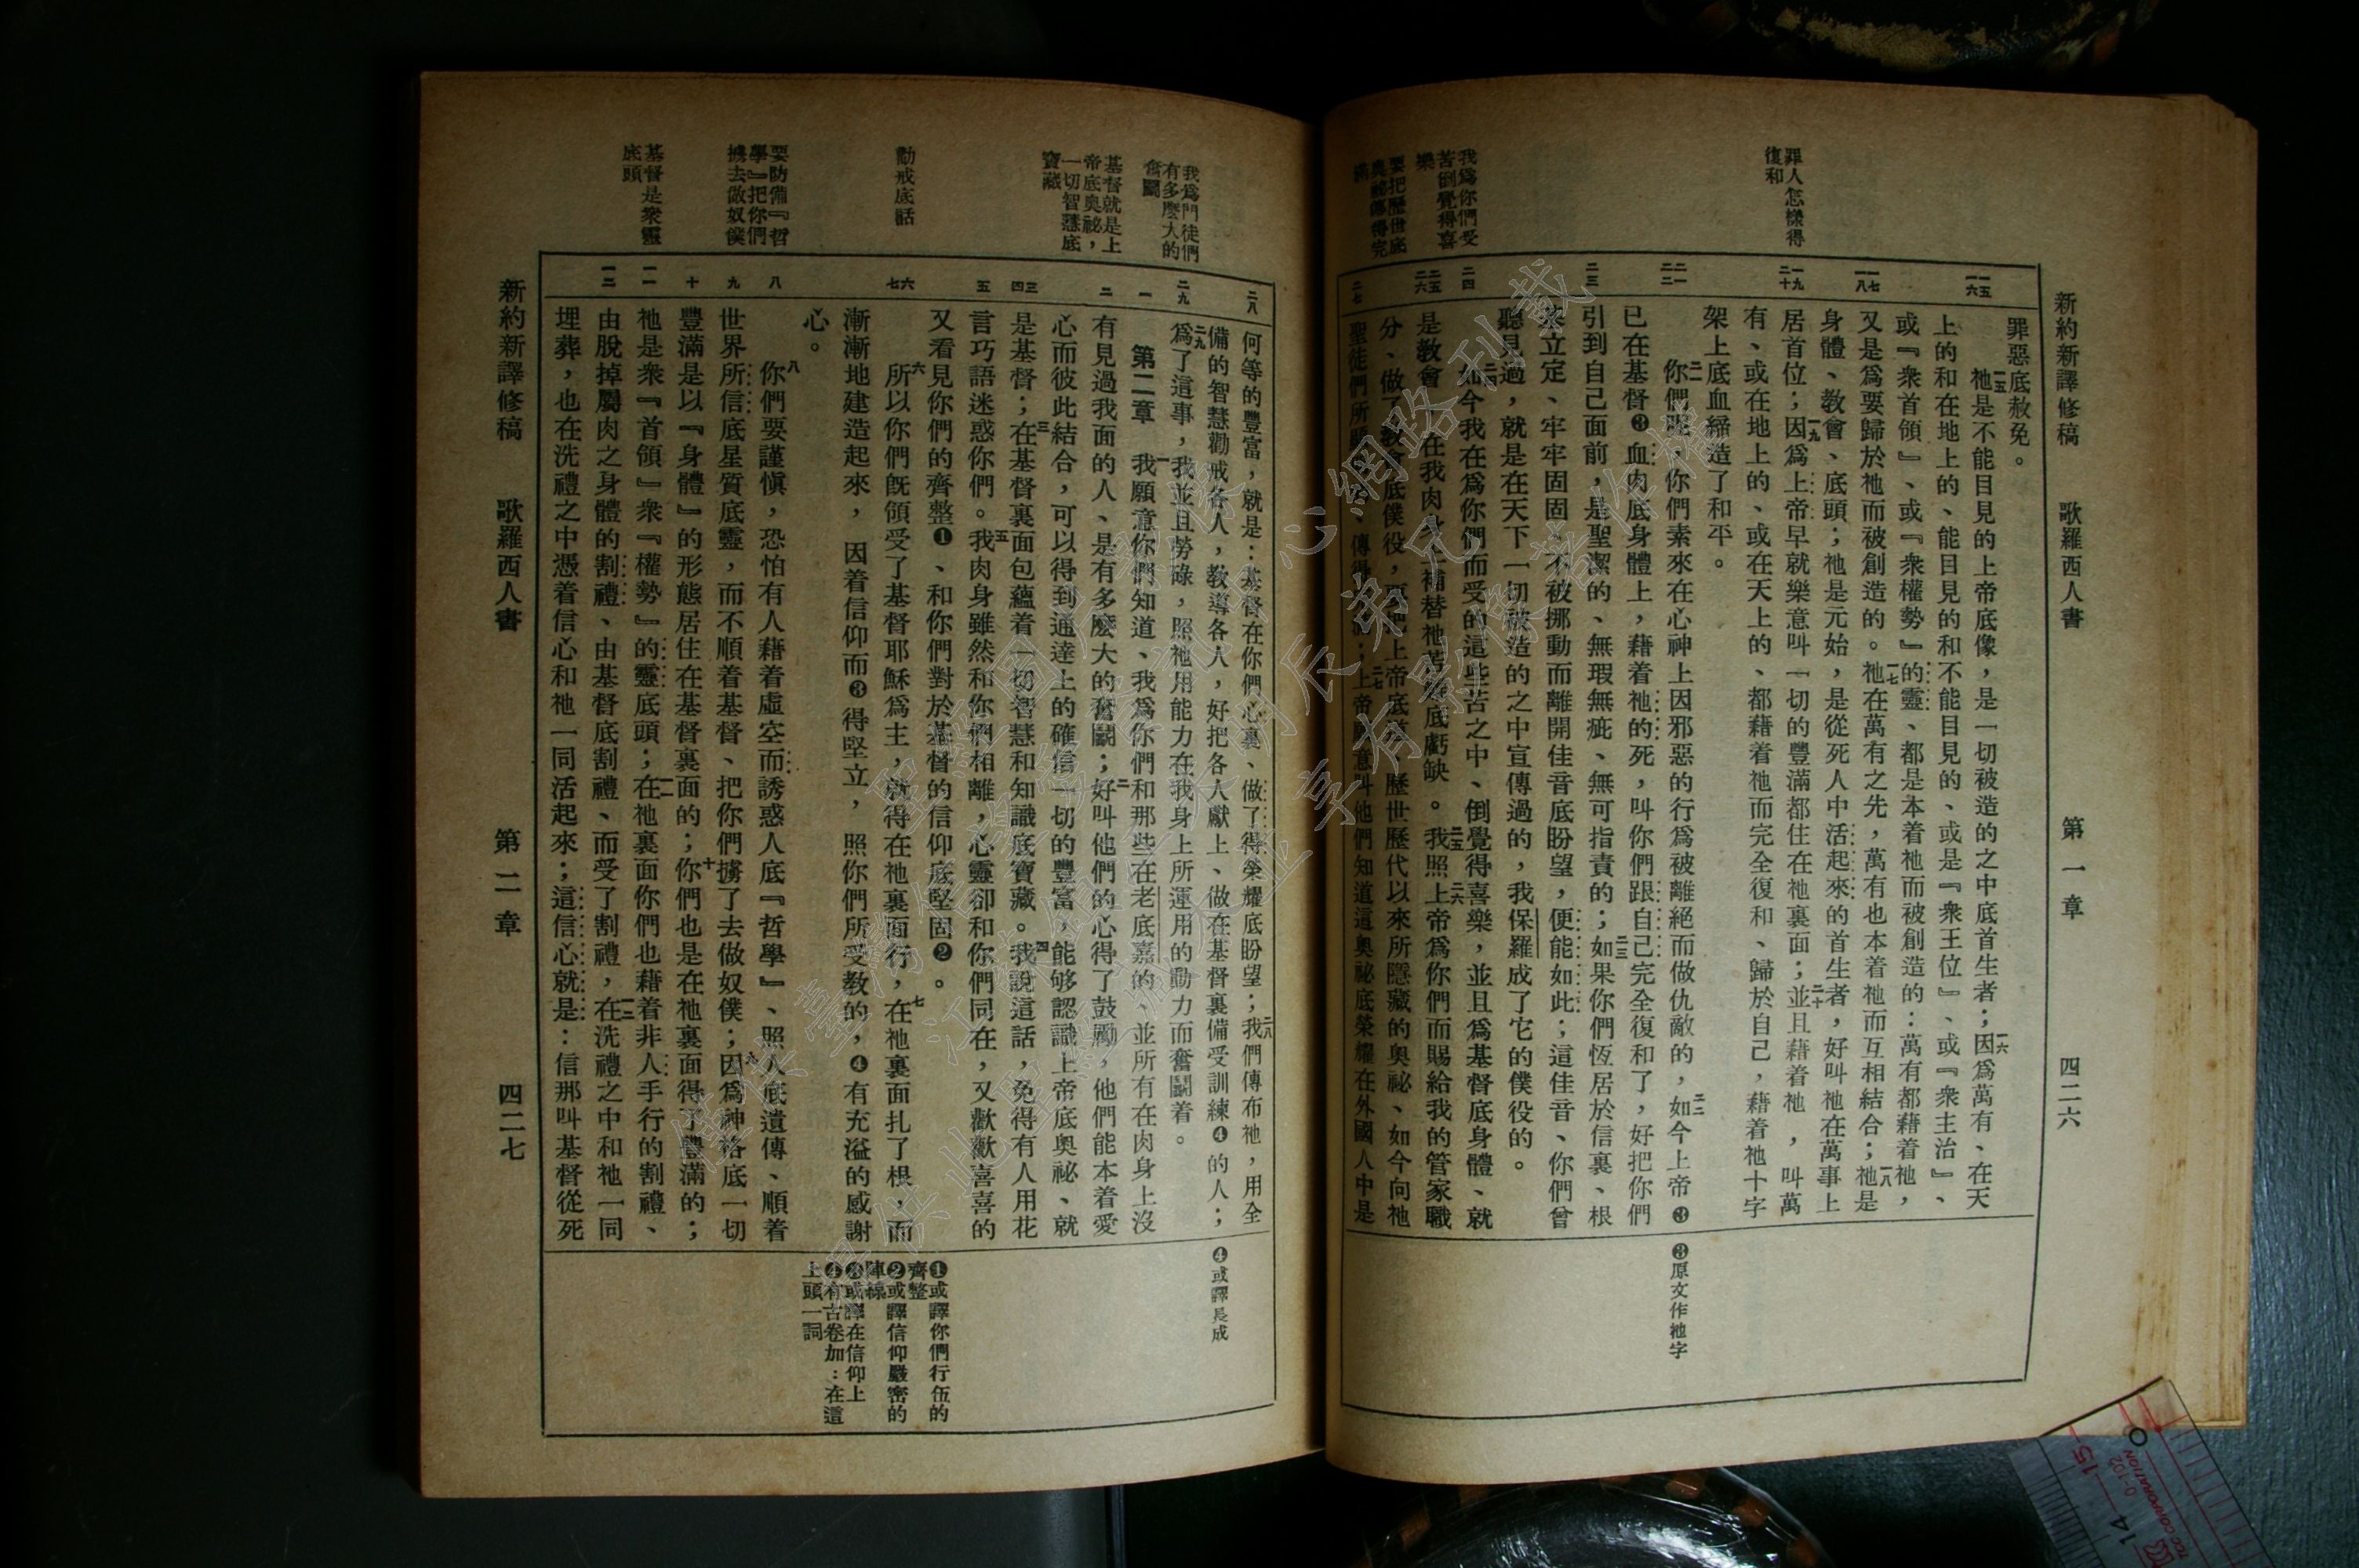 新約新譯修稿　歌羅西人書　第一章　四二六
罪人怎樣得
復和
我爲你們受
苦倒覺得喜
樂
要把歷世底
奧祕傳得完
滿
一五
一六
一七
一八
一九
二十
二一
二二
二三
二四
二五
二六
二七
罪惡底赦免。
一五祂是不能目見的上帝底像，是一切被造的之中底首生者；一六因爲萬有、在天
上的和在地上的、能目見的和不能目見的、或是『衆王位』、或『衆主治』、
或『衆首領』、或『衆權勢』的靈、都是本着祂而被創造的：萬有都藉着祂，
又是爲要歸於祂而被創造的。一七祂在萬有之先，萬有也本着祂而互相結合；一八祂是
身體、教會、底頭；祂是元始，是從死人中活起來的首生者，好叫祂在萬事上
居首位；一九因爲上帝早就樂意叫一切的豐滿都住在祂裏面；二十並且藉着祂，叫萬
有、或在地上的、或在天上的、都藉着祂而完全復和、歸於自己，藉着祂十字
架上底血締造了和平。
二一你們呢，你們素來在心神上因邪惡的行爲被離絕而做仇敵的，二二如今上帝❸
已在基督❸血肉底身體上，藉着祂的死，叫你們跟自己完全復和了，好把你們
引到自己面前，是聖潔的、無瑕無疵、無可指責的；二三如果你們恆居於信裏、根
立定、牢牢固固、不被挪動而離開佳音底盼望，便能如此；這佳音、你們曾
聽見過，就是在天下一切被造的之中宣傳過的，我保羅成了它的僕役的。
二四如今我在爲你們而受的這些苦之中、倒覺得喜樂，並且爲基督底身體、就
是教會、在我肉身上補替祂苦難底虧缺。二五我照上帝爲你們而賜給我的管家職
分、做了教會底僕役，要把上帝底道、二六歷世歷代以來所隱藏的奧祕、如今向祂
聖徒們所顯　、傳得　；二七上帝　意叫他們知道這奧祕底榮耀在外國人中是
❸原文作祂字
我爲門徒們
有多麼大的
奮鬭
基督就是上
帝底奧祕，
一切智慧底
寶藏
勸戒底話
要防備『哲
學』把你們
擄去做奴僕
基督是衆靈
底頭
二八
二九
一
二
三
四
五
六
七
八
九
十
一一
一二
何等的豐富，就是：基督在你們心裏、做了得榮耀底盼望；二八我們傳布祂，用全
備的智慧勸戒各人，教導各人，好把各人獻上、做在基督裏備受訓練❹的人；
二九爲了這事，我並且勞碌，照祂用能力在我身上所運用的動力而奮鬭着。
第二章　一我願意你們知道、我爲你們和那些在老底嘉的、並所有在肉身上沒
有見過我面的人、是有多麼大的奮鬭；二好叫他們的心得了鼓勵，他們能本着愛
心而彼此結合，可以得到通達上的確信一切的豐富，能够認識上帝底奧祕、就
是基督；三在基督裏面包蘊着一切智慧和知識底寶藏。四我說這話，免得有人用花
言巧語迷惑你們。五我肉身雖然和你們相離，心靈卻和你們同在，又歡歡喜喜的
又看見你們的齊整❶、和你們對於基督的信仰底堅固❷。
六所以你們旣領受了基督耶穌爲主，就得在祂裏面行，七在祂裏面扎了根，而
漸漸地建造起來，因着信仰而❸得堅立，照你們所受教的，❹有充溢的感謝
心。
八你們要謹愼，恐怕有人藉着虛空而誘惑人底『哲學』、照人底遺傳、順着
世界所信底星質底靈，而不順着基督、把你們擄了去做奴僕；九因爲神格底一切
豐滿是以『身體』的形態居住在基督裏面的；十你們也是在祂裏面得了豐滿的；
祂是衆『首領』衆『權勢』的靈底頭；一一在祂裏面你們也藉着非人手行的割禮、
由脫掉屬肉之身體的割禮、由基督底割禮、而受了割禮，一二在洗禮之中和祂一同
埋葬，也在洗禮之中憑着信心和祂一同活起來；這信心就是：信那叫基督從死
❹或譯長成
❶或譯你們行伍的
齊整
❷或譯信仰嚴密的
陣線
❸或譯在信仰上
❹有古卷加：在這
上頭一詞
新約新譯修稿　歌羅西人書　第二章　四二七
15
14
0